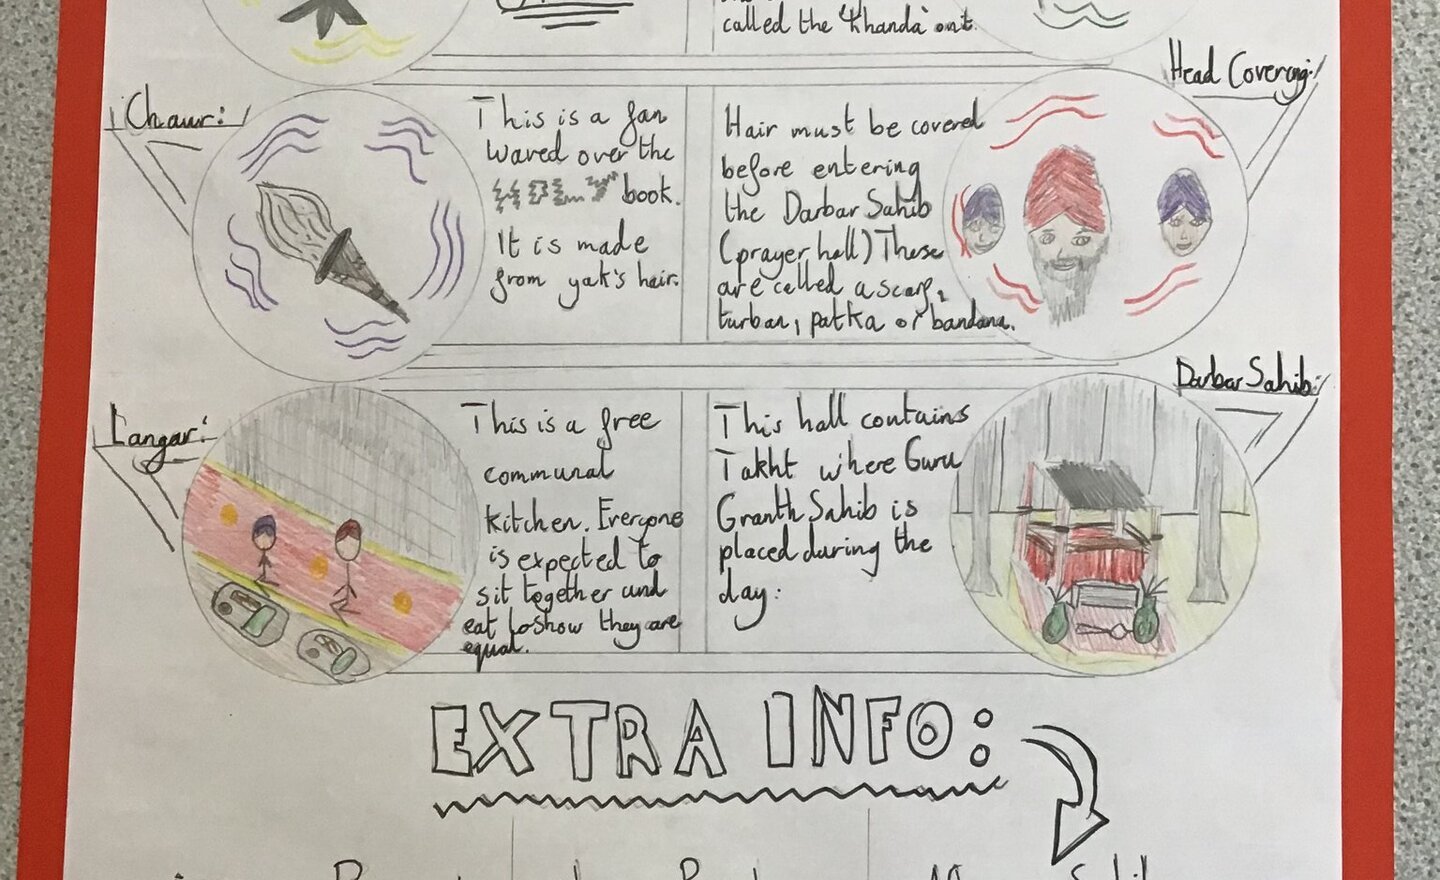 called the 'Khanda' ont.
Head Covering:
Chaur:
This is a fan
waved over the
book.
It is made
from yak's hair.
Hair must be covered
before entering
the Darbar Sahib
(prayer hall) These
are called a scarf,
turban, patka or bandana.
Langar:
This is a free
communal
kitchen. Everyone
is expected to
sit together and
eat to show they are
equal.
Darbar Sahib:
This hall contains
Takht where Guru
Granth Sahib is
placed during the
day.
EXTRA INFO: